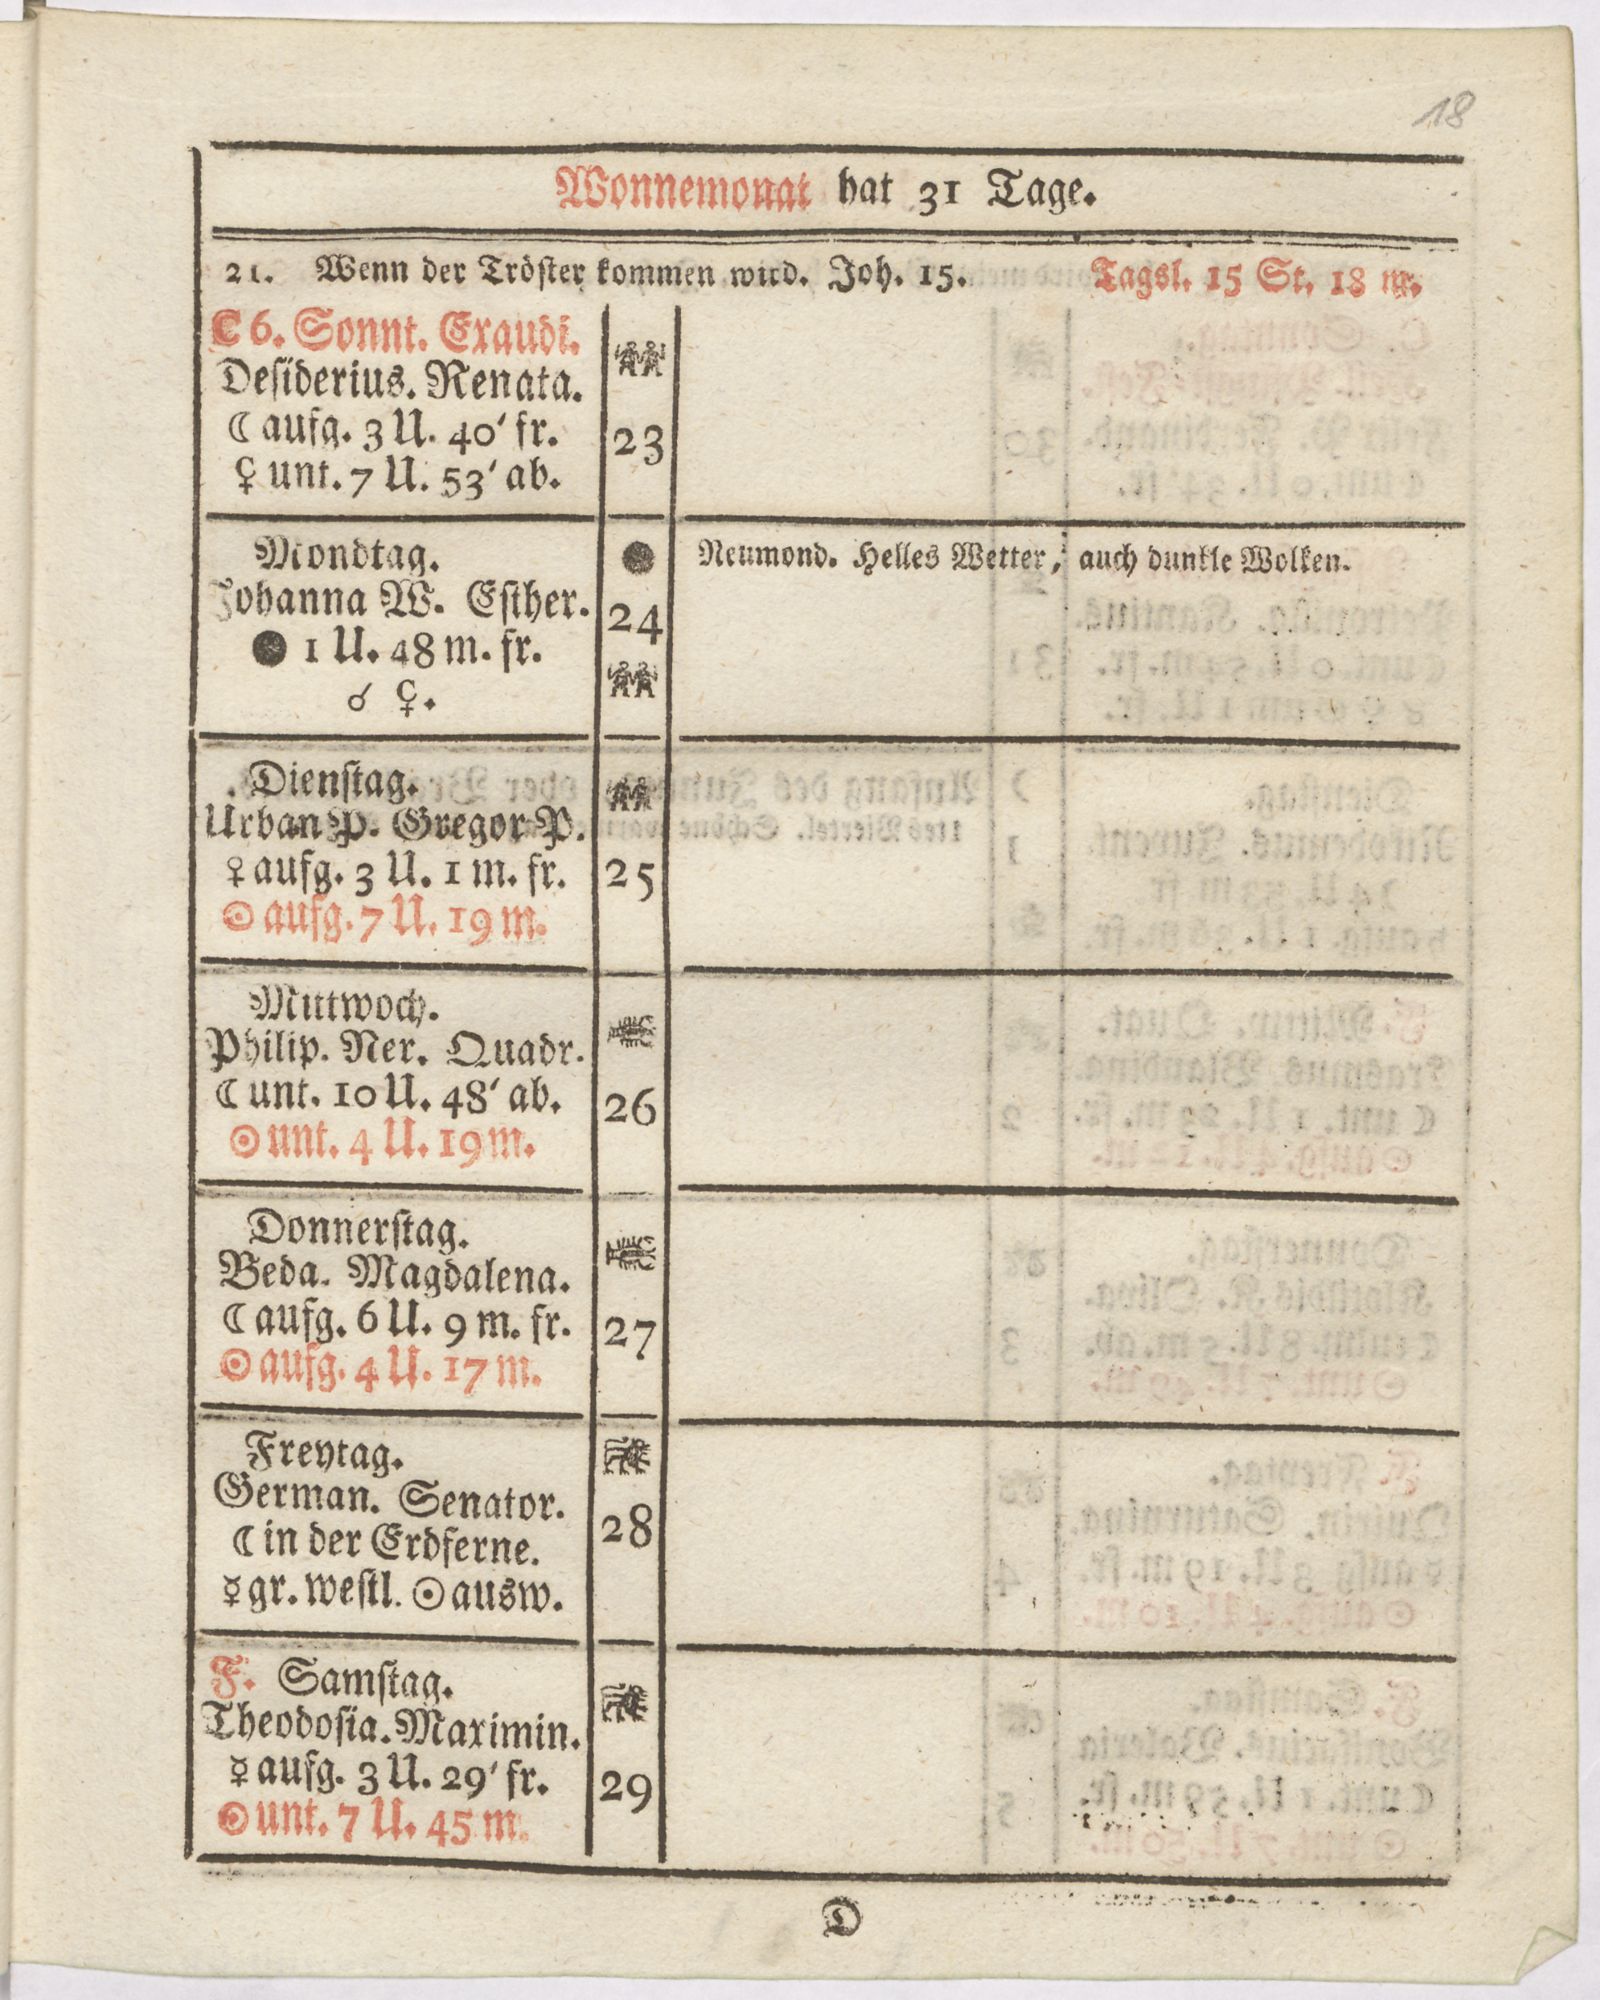 18
Wonnemonat hat 31 Tage.
21. Wenn der Tröster kommen wird. Joh. 15. Tagsl. 15 St. 18 m.
C 6. Sonnt. Exaudi.
Desiderius. Renata.
☾ aufg. 3 U. 40' fr.
♀ unt. 7 U. 53' ab.
23
Mondtag.
Johanna W. Esther.
● 1 U. 48 m. fr.
☌ ♀.
●
24
Neumond. Helles Wetter, auch dunkle Wolken.
Dienstag.
Urban P. Gregor P.
♀ aufg. 3 U. 1 m. fr.
☉ aufg. 7 U. 19 m.
25
Mittwoch.
Philip. Ner. Quadr.
☾ unt. 10 U. 48' ab.
☉ unt. 4 U. 19 m.
26
Donnerstag.
Beda. Magdalena.
☾ aufg. 6 U. 9 m. fr.
☉ aufg. 4 U. 17 m.
27
Freytag.
German. Senator.
☾ in der Erdferne.
☿ gr. westl. ☉ ausw.
28
F. Samstag.
Theodosia. Maximin.
☿ aufg. 3 U. 29' fr.
☉ unt. 7 U. 45 m.
29
D